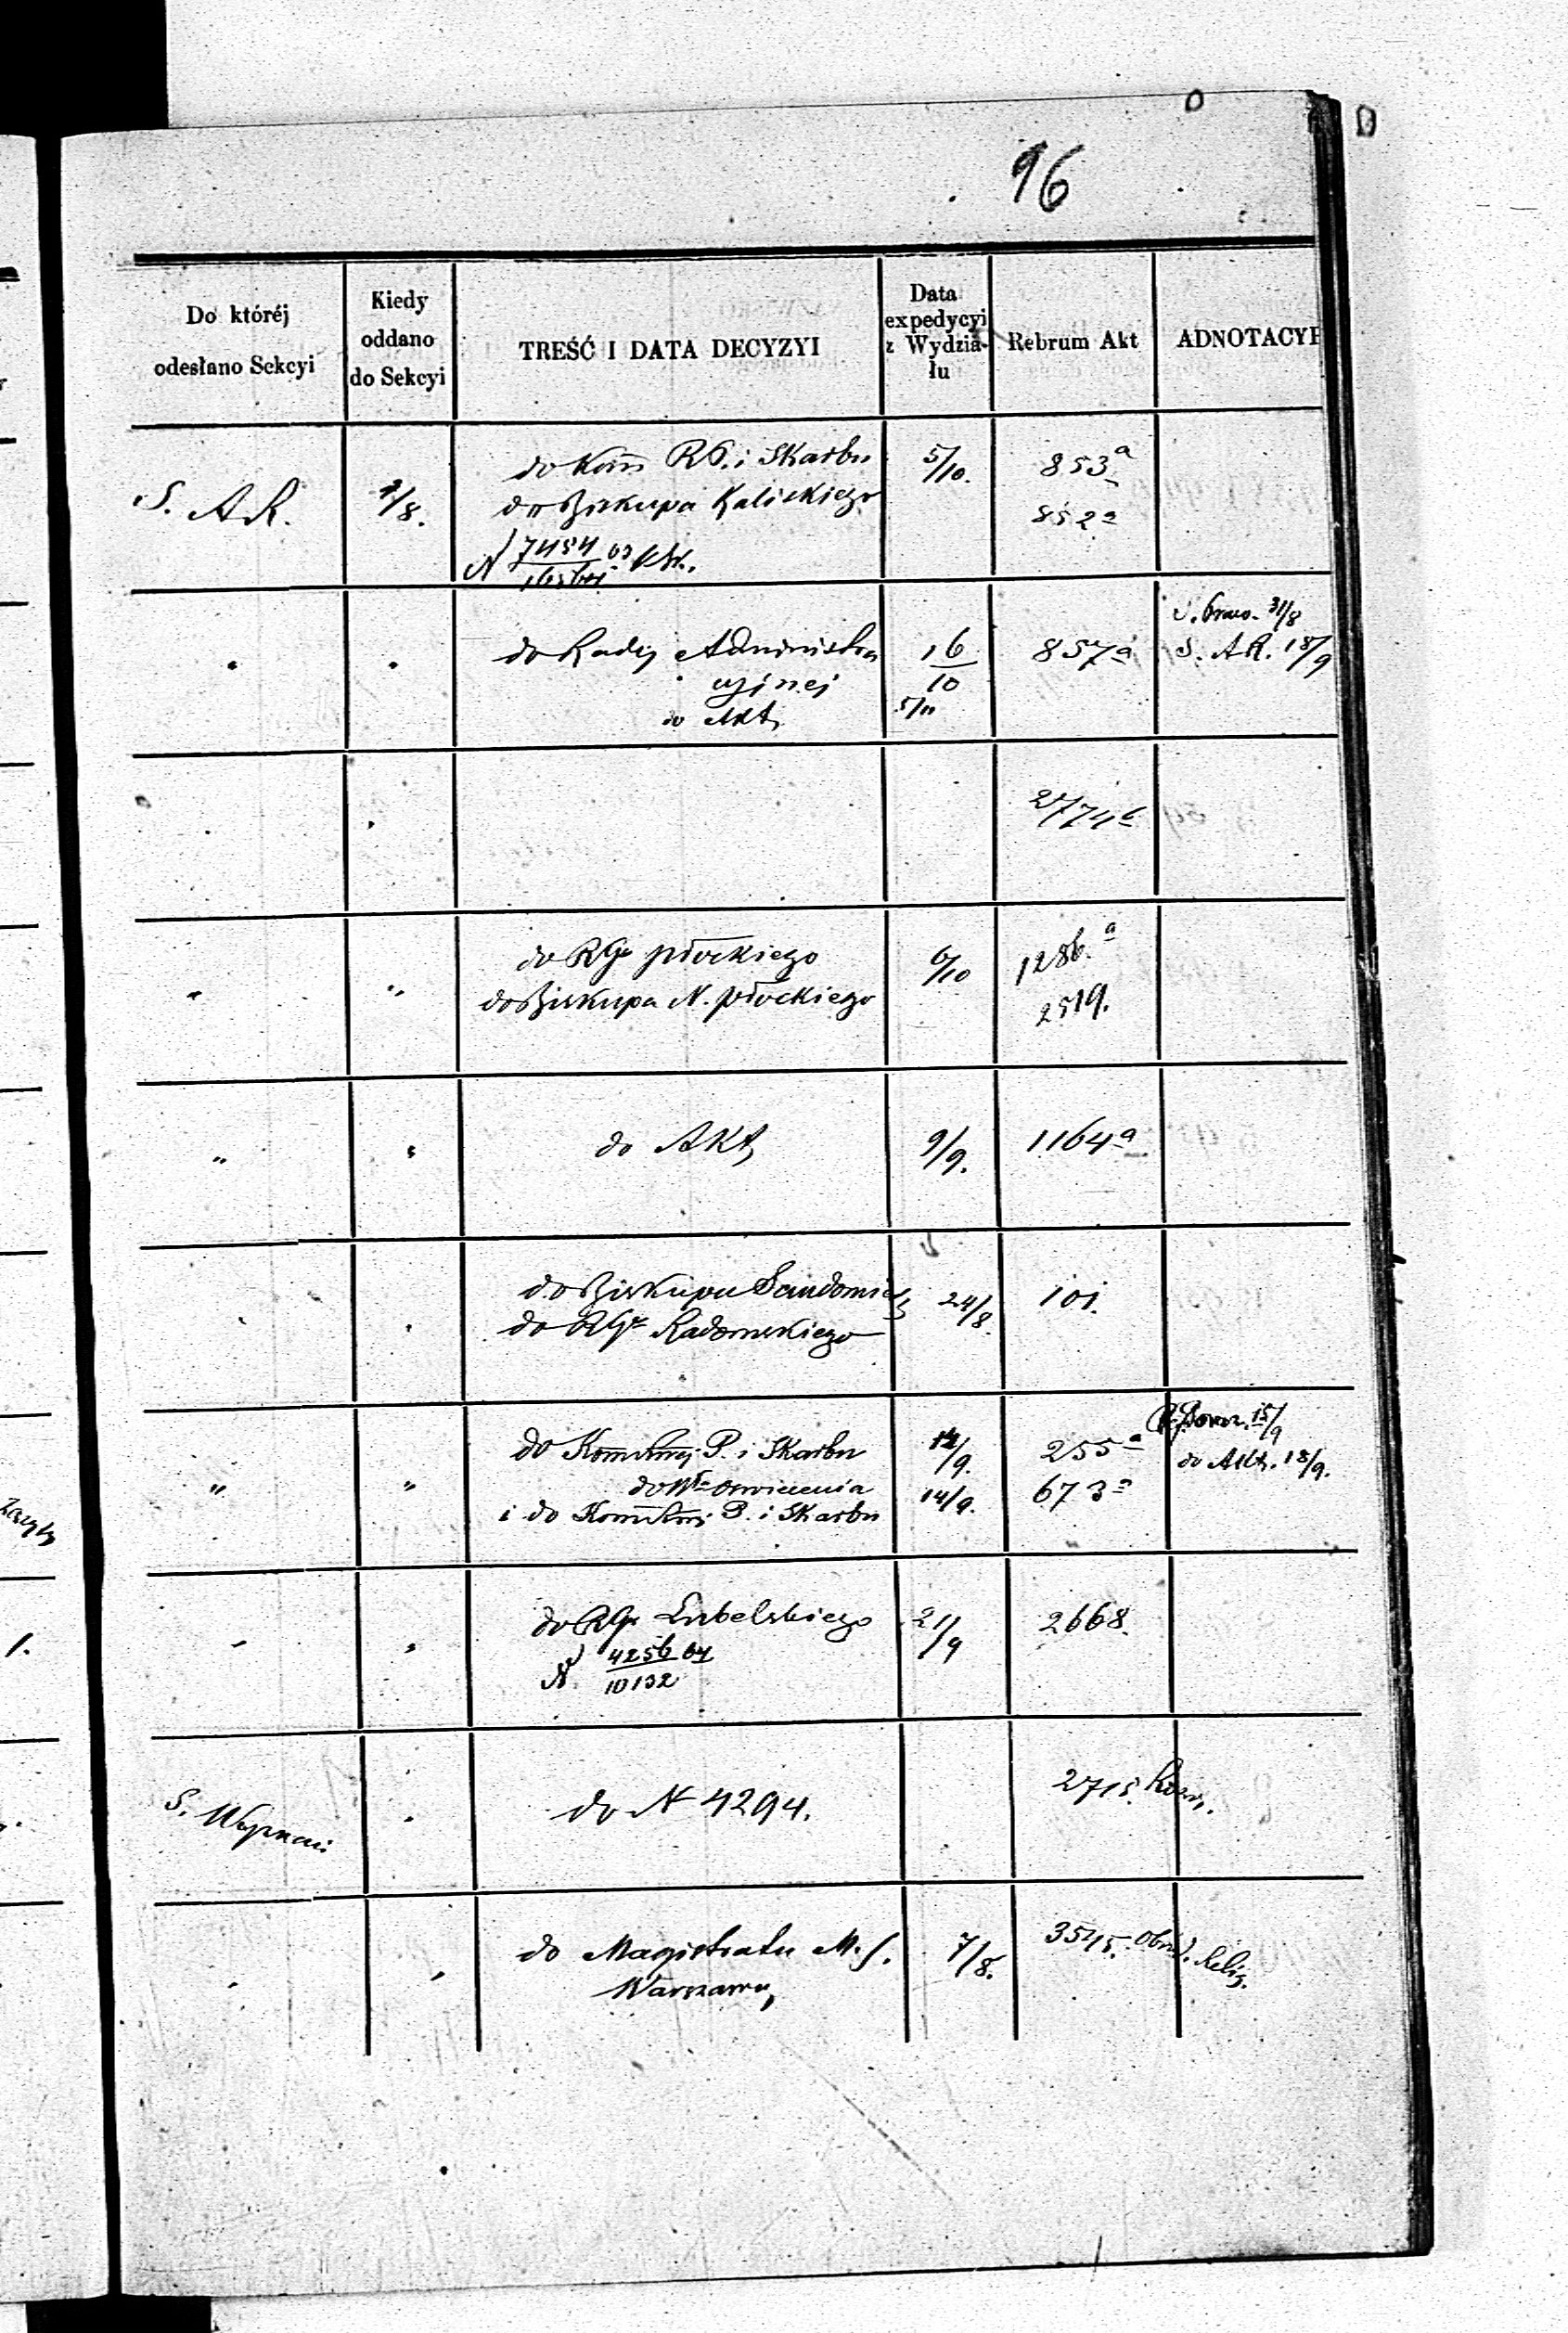 96
Do któréj
odesłano Sekcyi
Kiedy
oddano
do Sekcyi
TREŚĆ I DATA DECYZYI
Data
expedycyi
z Wydzia-
łu
Rebrum Akt
ADNOTACYE
S. A R.
1/8.
do Kom R P. i Skarbu
do Biskupa Kaliskiego
N 7484
5/10.
853 a
852 a
" "
do Rady Administra
cyjnej
do Akt
16/10
5/11
857 a
31/8
S. A R. 18/9
2774 b
do RGo płockiego
do Biskupa N. płockiego
6/10
1286. a
2519.
" "
do Akt
9/9.
1164 a
do Biskupa Sandomie
do RGo Radomskiego
24/8.
101.
" "
do P. i Skarbu
do oswiecenia
i do P. i Skarbu
14/9.
14/9.
255 a
673 a
15/9
do Akt. 18/9.
do RGo Lubelskiego
N. 4256/10132 64
21/9
2668.
S. Wyznań
do N 4294.
2715.
do Magistratu M. S.
Warszawy
7/8.
3545. Obrz. Relig.